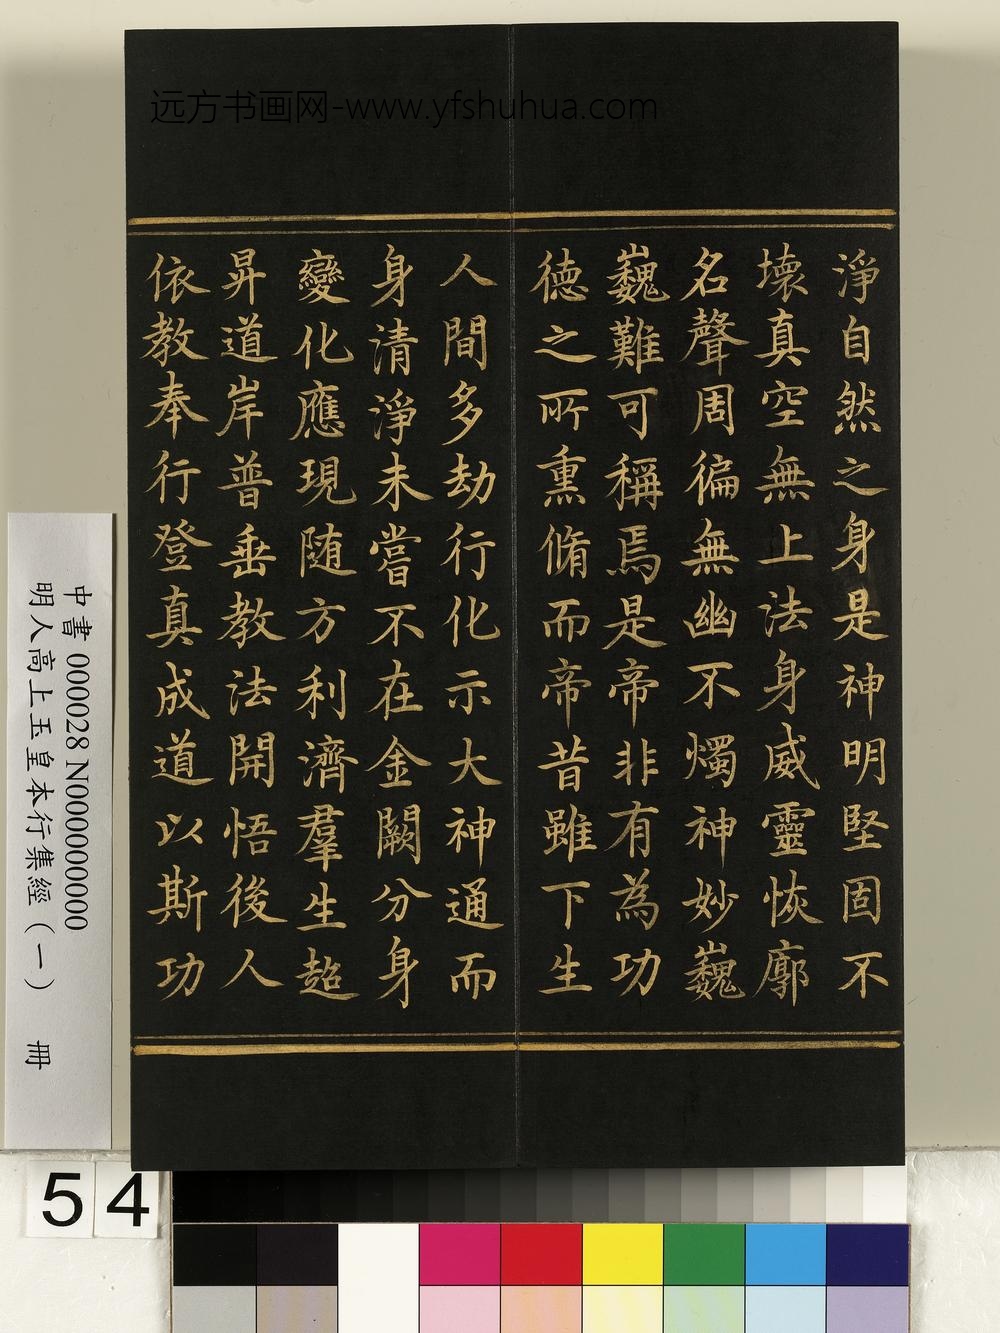 远方书画网-www.yfshuhua.com
淨自然之身是神明堅固不
壞真空無上法身威靈恢廓
名聲周徧無幽不燭神妙巍
巍難可稱焉是帝非有為功
德之所熏脩而帝昔雖下生
人間多劫行化示大神通而
身清淨未嘗不在金闕分身
變化應現随方利濟羣生超
昇道岸普垂教法開悟後人
依教奉行登真成道以斯功
中書 000028 N000000000
明人高上玉皇本行集經（一） 冊
54